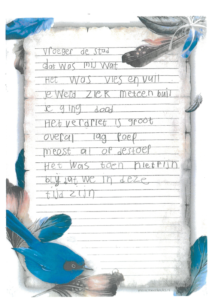 vroeger de stad
dat was mij wat
Het was vies en vuil
je werd ziek meteen buil
je ging dood
Het verdriet is groot
overal lag poep
meest al op de stoep
Het was toen niet fijn
blij dat we in deze
tijd zijn